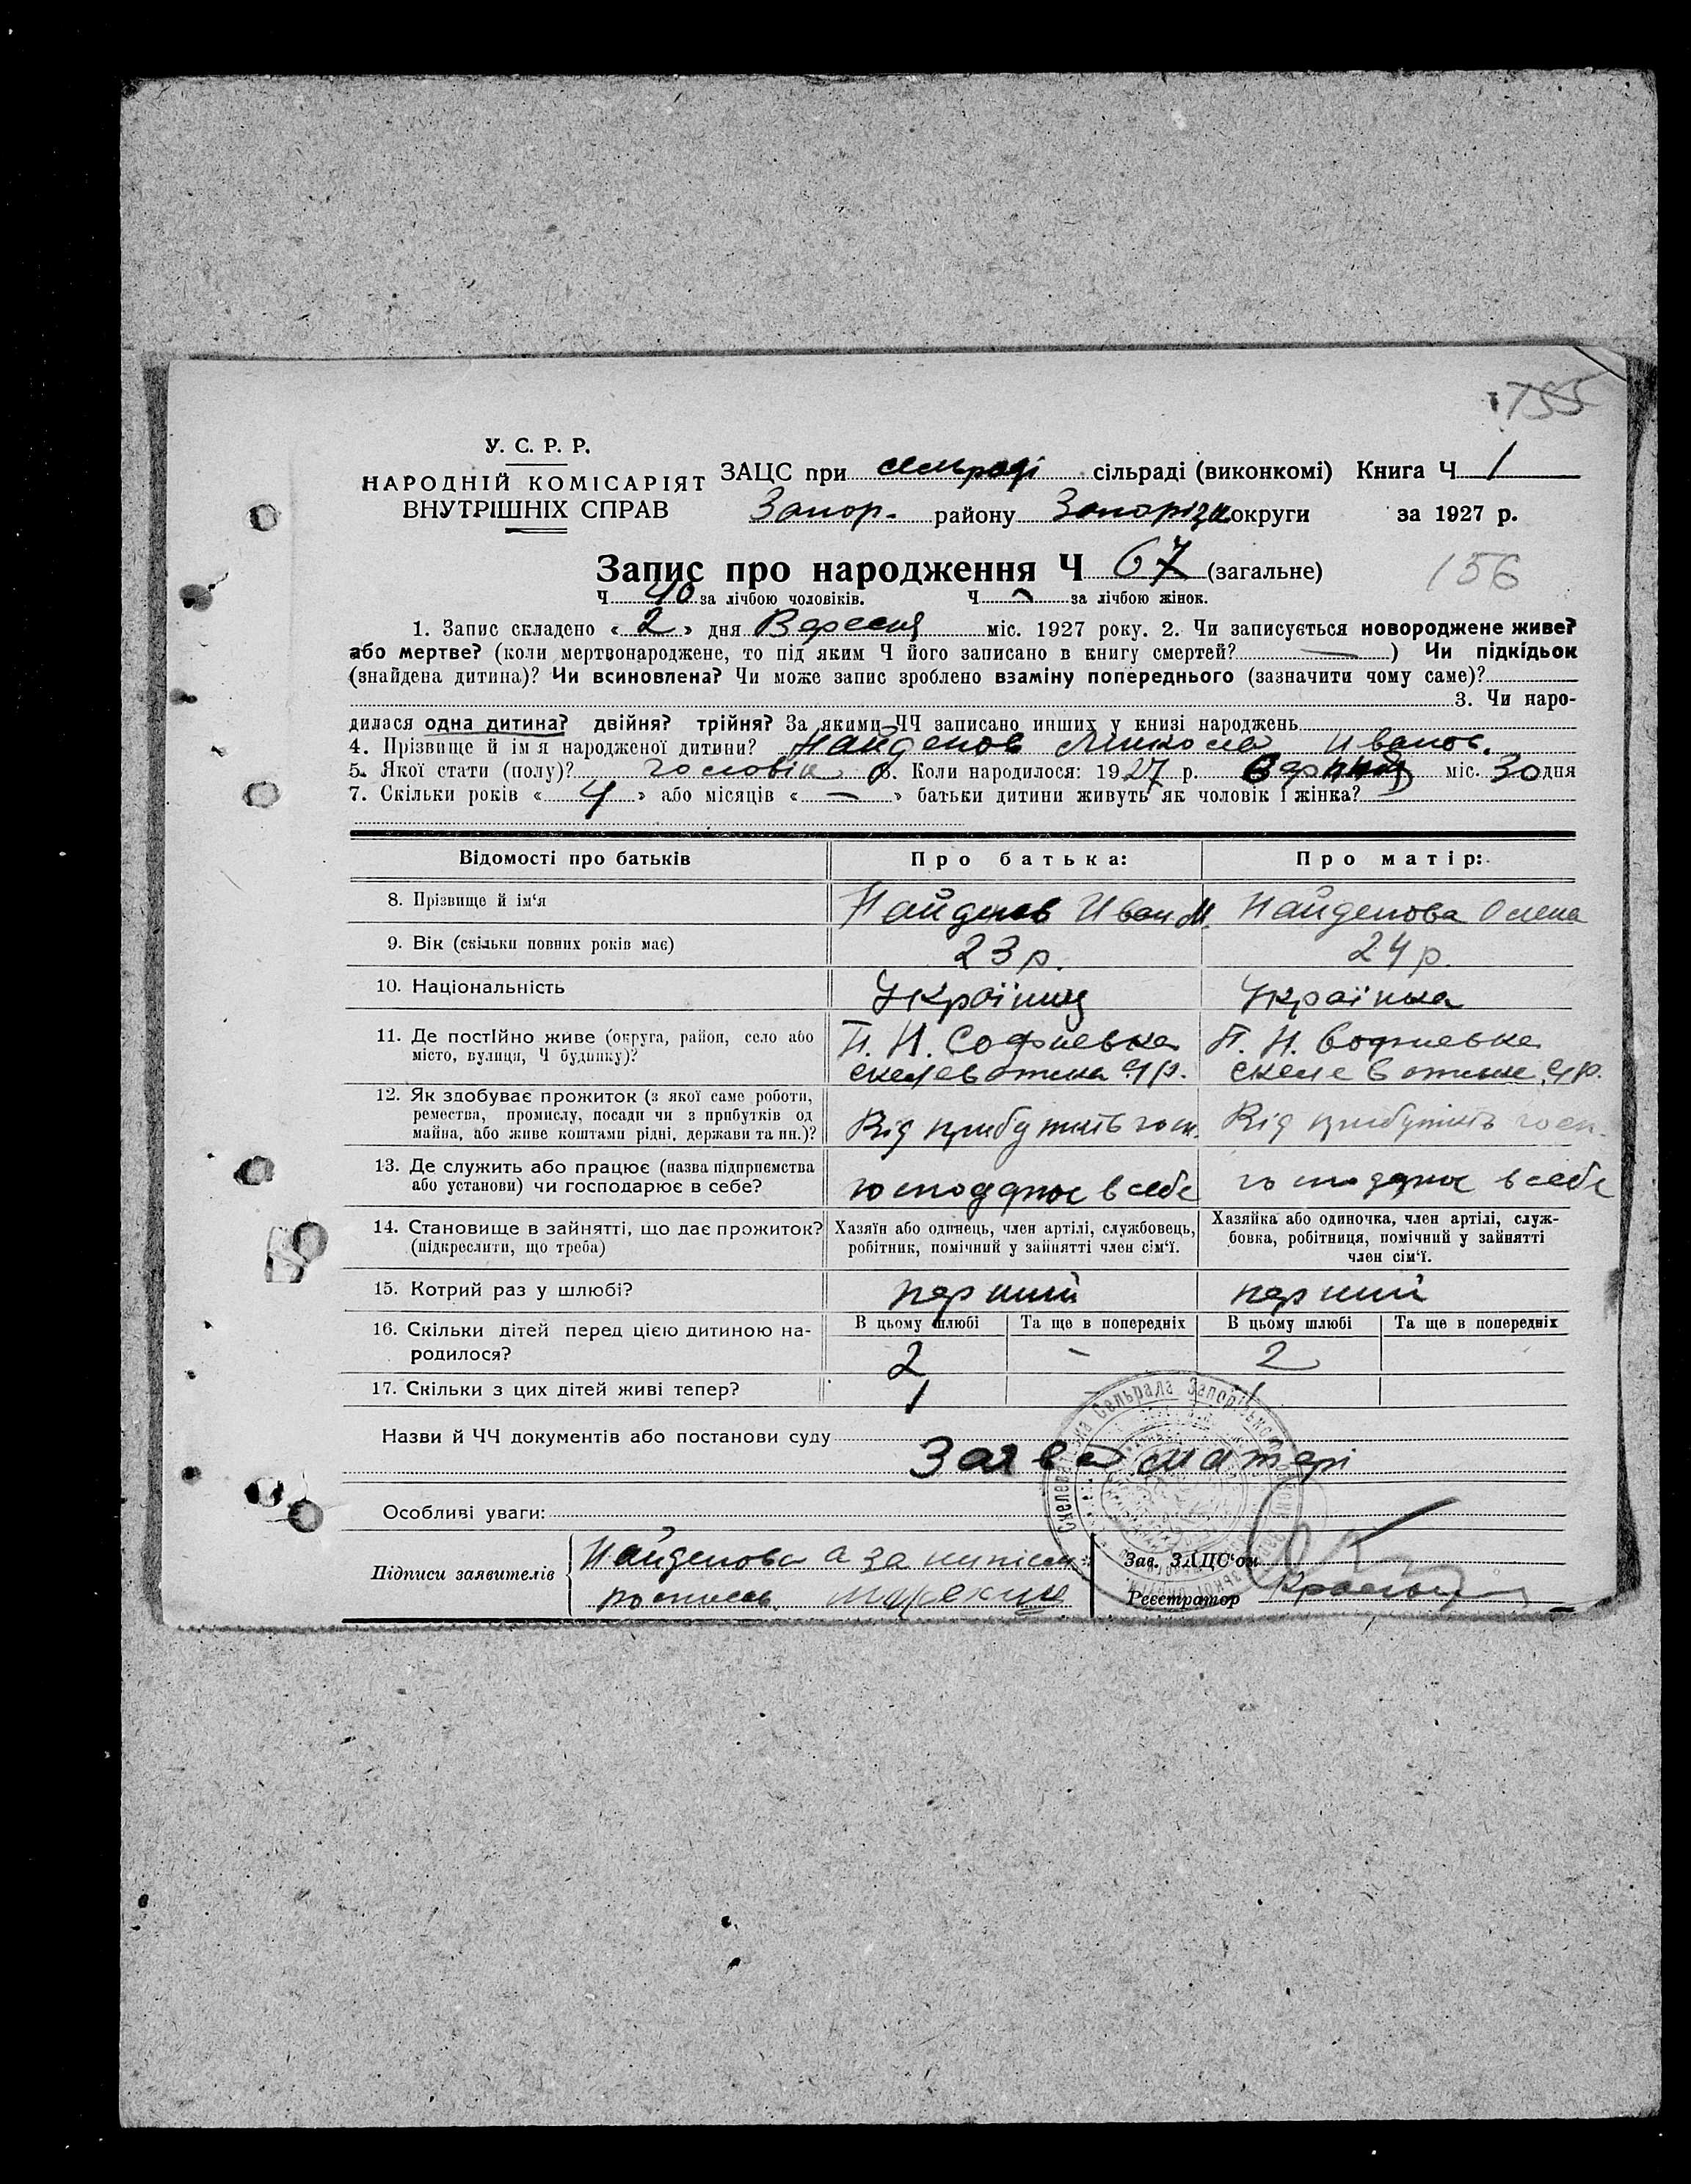 155
У. С. Р. Р.
НАРОДНІЙ КОМІСАРІЯТ
ВНУТРІШНІХ СПРАВ
ЗАЦС при сельраді сільраді (виконкомі) Книга Ч 1
Запор. району Запорізк. округи за 1927 р.
Запис про народження Ч 67 (загальне)
156
Ч 40 за лічбою чоловіків. Ч за лічбою жінок.
1. Запис складено «2» дня Вересня міс. 1927 року. 2. Чи записується новороджене живе?
або мертве? (коли мертвонароджене, то під яким Ч його записано в книгу смертей? —) Чи підкідьок
(знайдена дитина)? Чи всиновлена? Чи може запис зроблено взаміну попереднього (зазначити чому саме)?
3. Чи наро-
дилася одна дитина? двійня? трійня? За якими ЧЧ записано инших у книзі народжень
4. Прізвище й ім'я народженої дитини? Найденов Микола Иванов.
5. Якої стати (полу)? чоловік 6. Коли народилося: 1927 р. міс. 30 дня
7. Скільки років «4» або місяців «—» батьки дитини живуть як чоловік і жінка?
Відомості про батьків Про батька: Про матір:
8. Прізвище й ім'я Найденов Иван М. Найденова Олена
9. Вік (скільки повних років має) 23 р. 24 р.
10. Національність Українец Українка
11. Де постійно живе (округа, район, село або
місто, вулиця, Ч будинку)?
П. Н. Софиевка П. Н. Софиевка
12. Як здобуває прожиток (з якої саме роботи,
ремества, промислу, посади чи з прибутків од
майна, або живе коштами рідні, держави та ин.)?
Від прибутків госп. Від прибутків госп.
13. Де служить або працює (назва підприємства
або установи) чи господарює в себе?
господарює в себе господарює в себе
14. Становище в зайнятті, що дає прожиток?
(підкреслити, що треба)
Хазяїн або одинець, член артілі, службовець,
робітник, помічний у зайнятті член сім'ї.
Хазяйка або одиночка, член артілі, служ-
бовка, робітниця, помічний у зайнятті
член сім'ї.
15. Котрий раз у шлюбі? перший перший
16. Скільки дітей перед цією дитиною на-
родилося?
В цьому шлюбі Та ще в попередніх В цьому шлюбі Та ще в попередніх
2 - 2
17. Скільки з цих дітей живі тепер? 1 1
Назви й ЧЧ документів або постанови суду
Заява матері
Особливі уваги:
Підписи заявителів Найденова а за
Зав. ЗАЦС'ом
Реєстратор